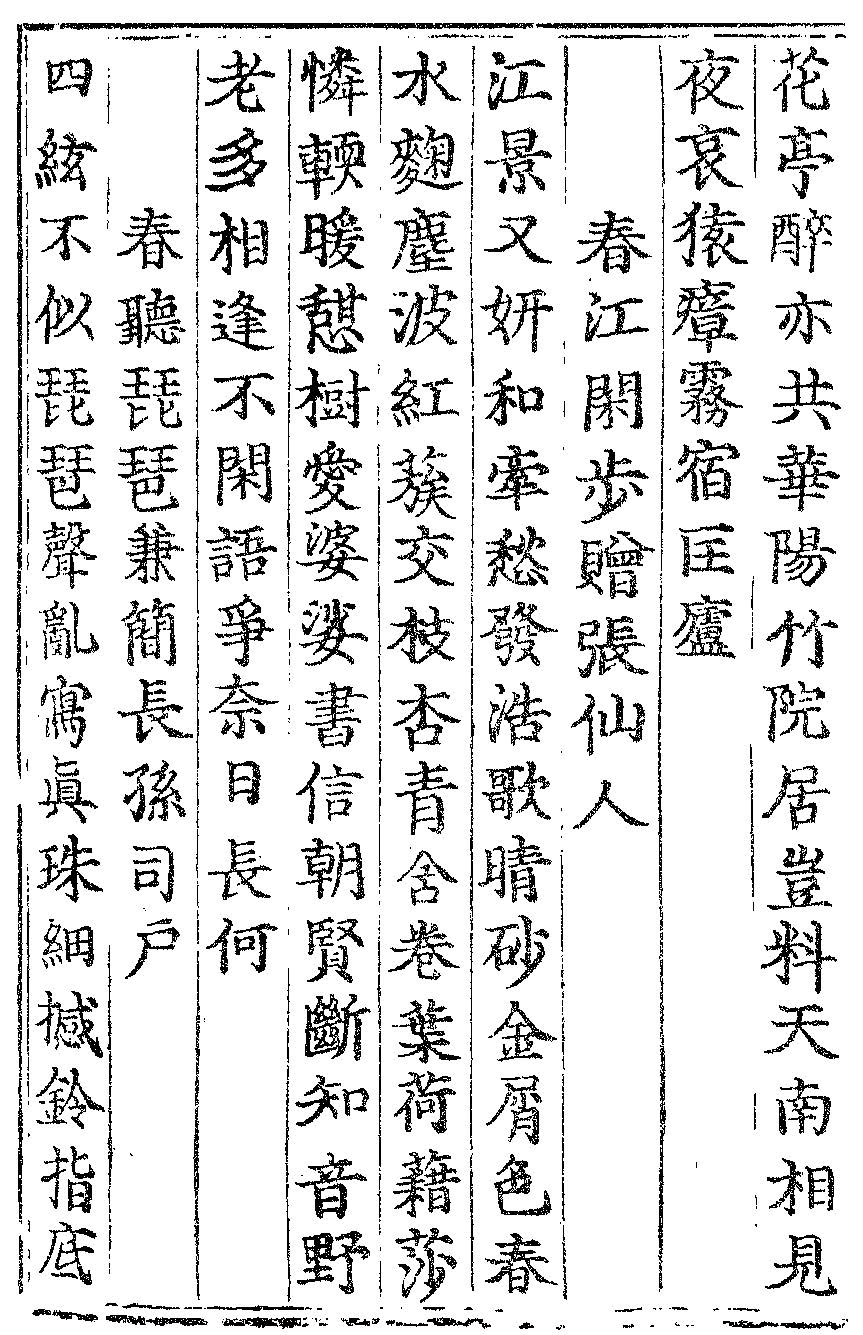 花亭醉亦共華陽竹院居豈料天南相見
夜哀猿瘴霧宿匡廬
春江閑步贈張仙人
江景又妍和牽愁發浩歌晴砂金屑色春
水麴塵波紅蔟交枝杏青含卷葉荷藉莎
憐輭暖憇樹愛婆娑書信朝賢斷知音野
老多相逢不閑語爭奈日長何
春聽琵琶兼簡長孫司戶
四絃不似琵琶聲亂寫眞珠細撼鈴指底